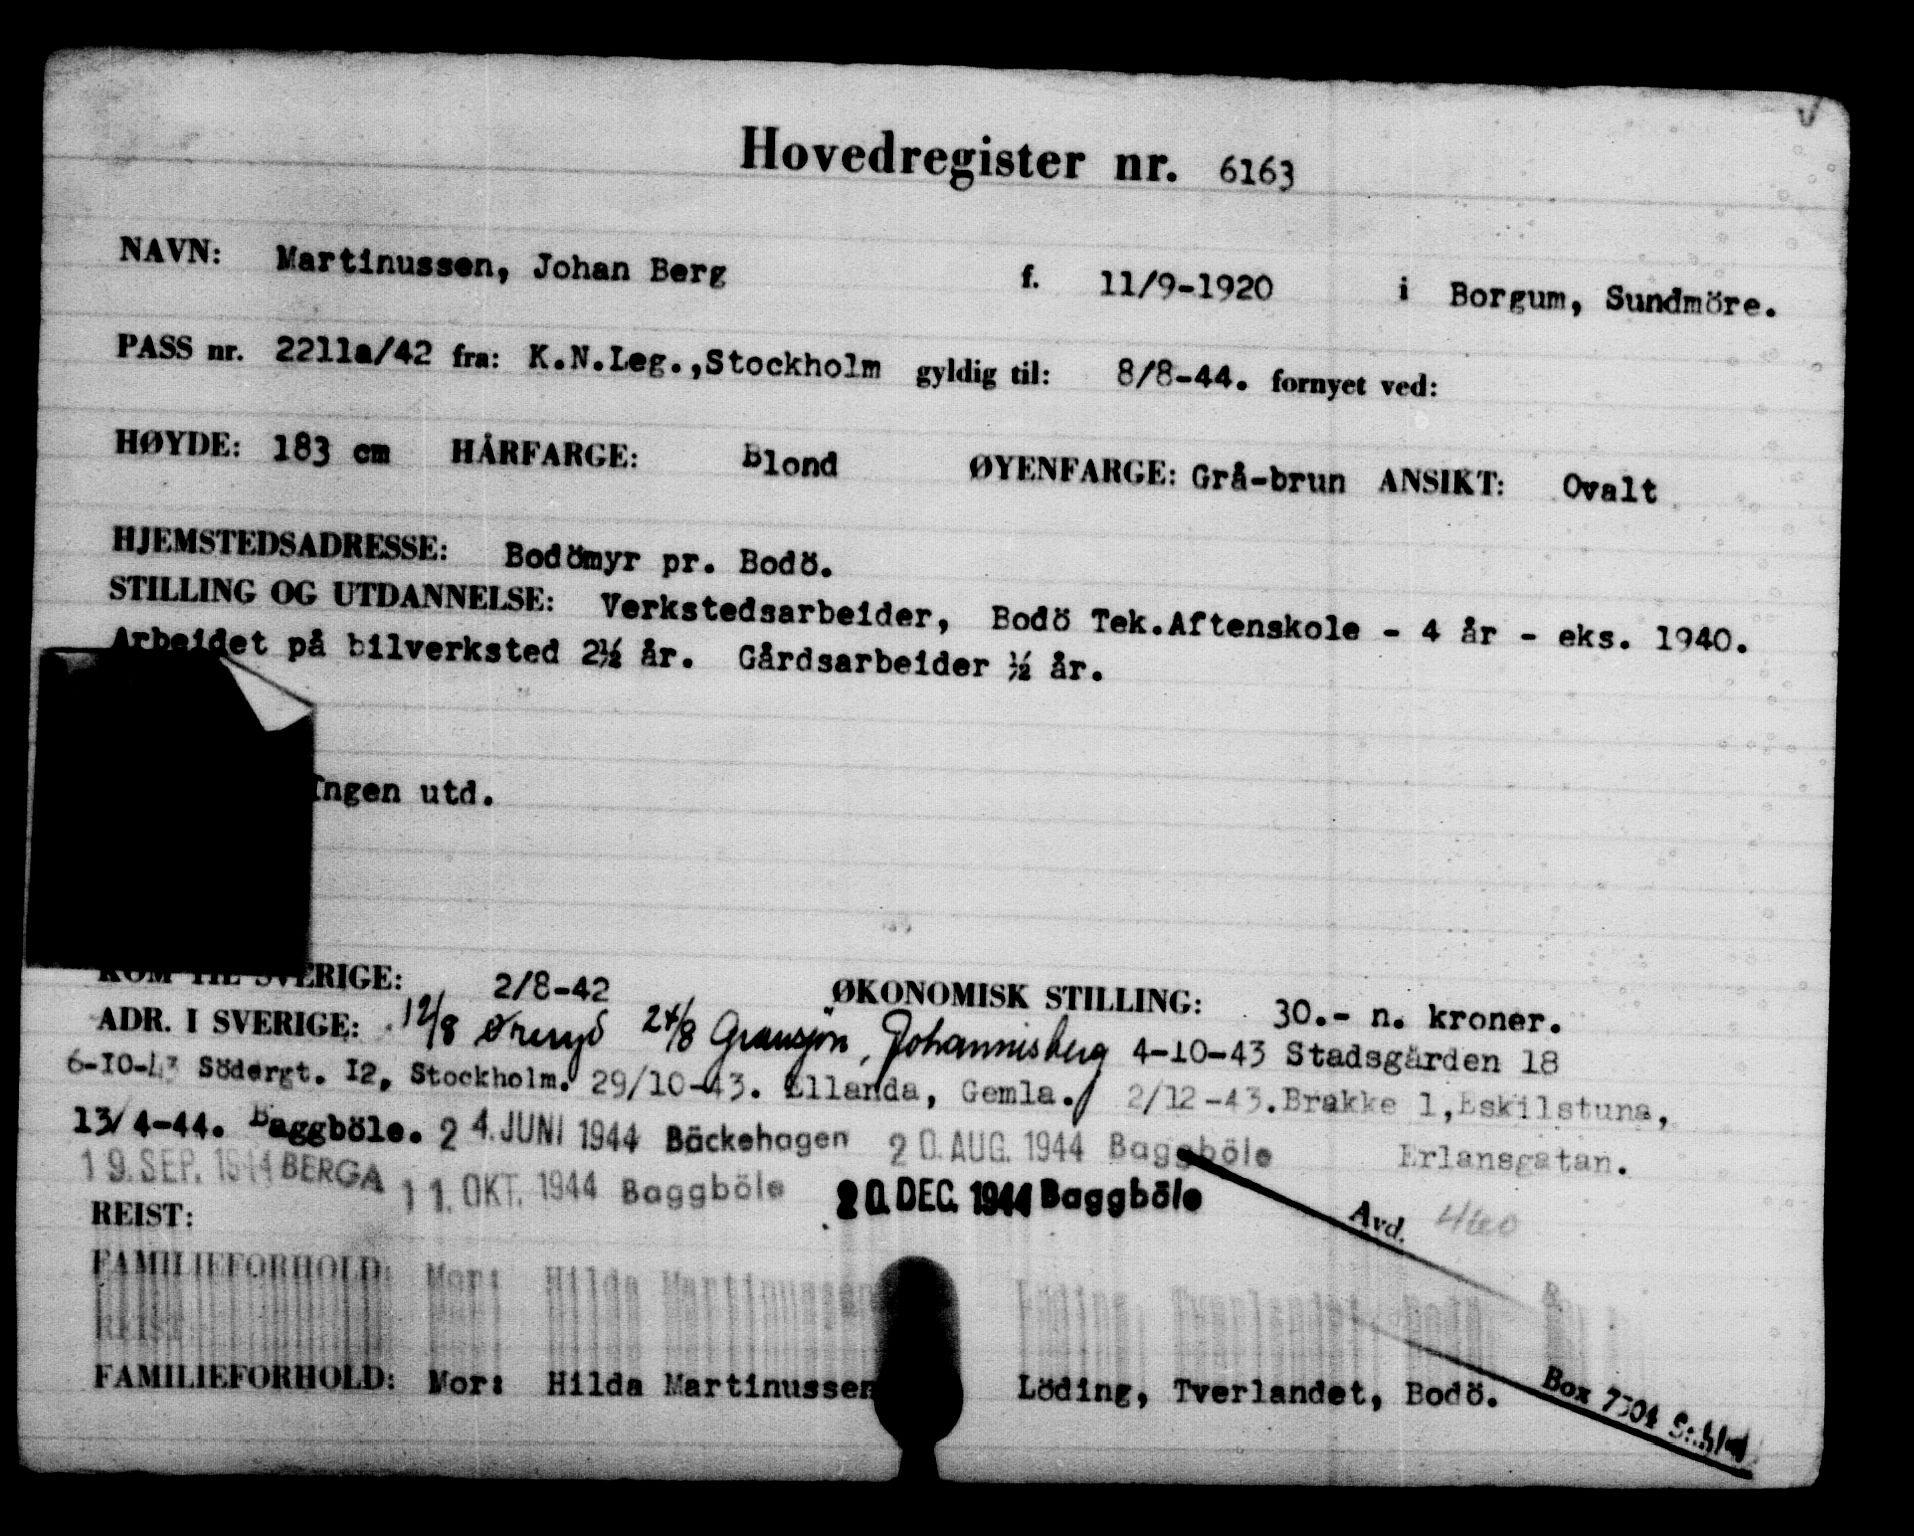 Hovedregister nr. 6163
NAVN: Martinussen, Johan Berg f. 11/9-1920 i Borgum, Sundmöre.
PASS nr. 2211a/42 fra: K.N.Leg.,Stockholm gyldig til: 8/8-44. fornyet ved:
HØYDE: 183 cm HÅRFARGE: Blond ØYENFARGE: Grå-brun ANSIKT: Ovalt
HJEMSTEDSADRESSE: Bodömyr pr. Bodö.
STILLING OG UTDANNELSE: Verkstedsarbeider, Bodö Tek.Aftenskole - 4 år - eks. 1940.
Arbeidet på bilverksted 2½ år. Gårdsarbeider ½ år.
Ingen utd.
KOM TIL SVERIGE: 2/8-42 ØKONOMISK STILLING: 30.- n. kroner.
ADR. I SVERIGE: 12/8 Øreryd 24/8 Gransjön, Johannisberg 4-10-43 Stadsgården 18
6-10-43 Södergt. 12, Stockholm. 29/10-43. Ellanda, Gemla. 2/12-43. Brakke 1, Eskilstuna,
13/4-44. Baggböle. 24. JUNI 1944 Bäckehagen 20. AUG. 1944 Baggböle Erlansgatan.
19. SEP. 1944 BERGA 11. OKT. 1944 Baggböle 20. DEC. 1944 Baggböle
Avd. 460
REIST:
FAMILIEFORHOLD: Mor: Hilda Martinussen
REIST
FAMILIEFORHOLD: Mor: Hilda Martinussen Löding, Tverlandet, Bodö.
Box 7504